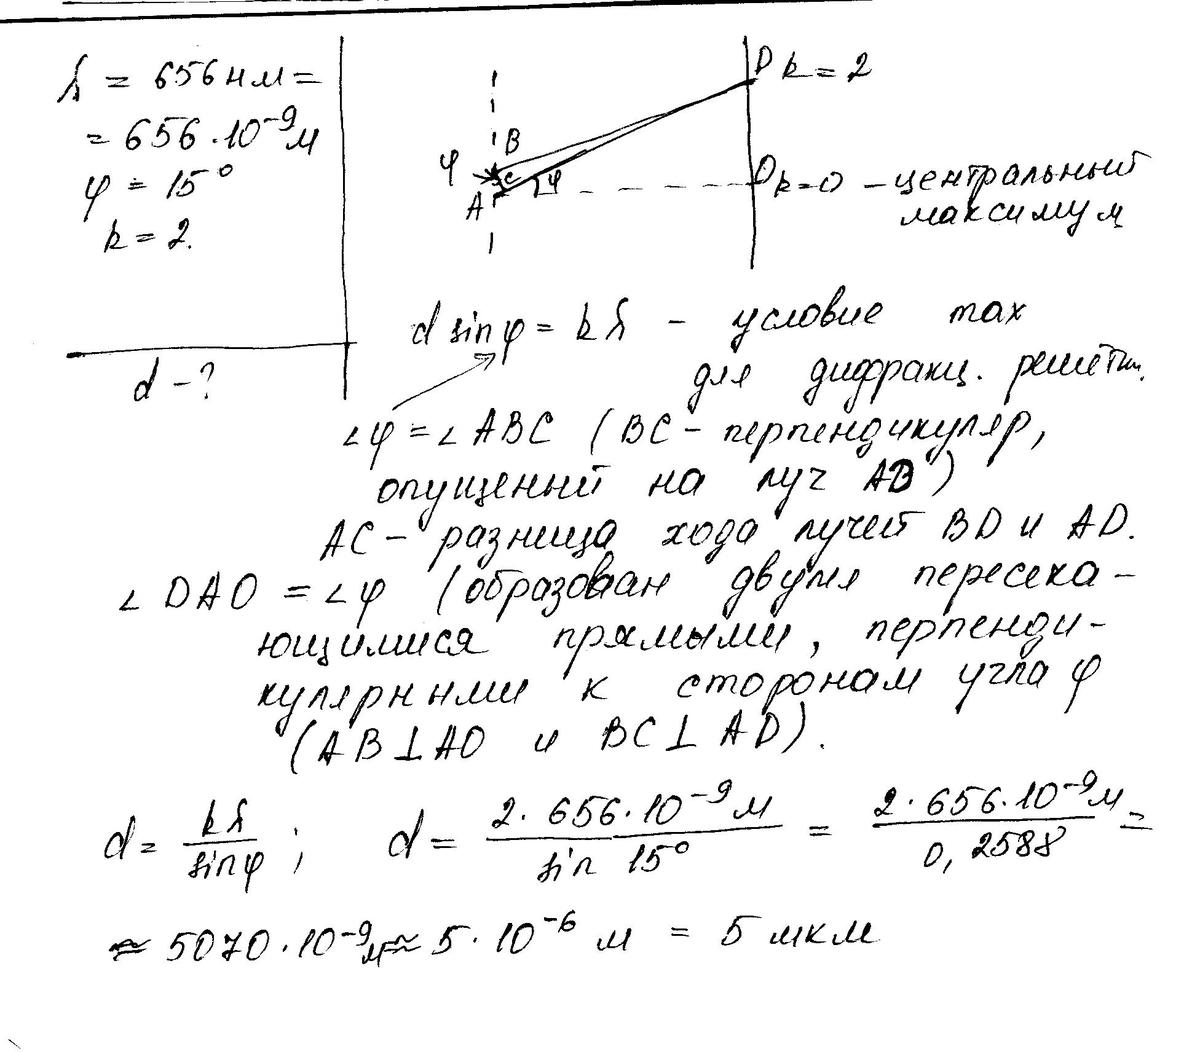 λ = 656 нм =
= 656 · 10⁻⁹ м
φ = 15°
k = 2.
d - ?
D k = 2
B
φ
C
φ
A
O k=0 - центральный
максимум
d sinφ = kλ - условие max
для дифракц. решётки.
∠φ = ∠ABC (BC - перпендикуляр,
опущенный на луч AD)
AC - разница хода лучей BD и AD.
∠DAO = ∠φ (образован двумя пересека-
ющимися прямыми, перпенди-
кулярными к сторонам угла φ
(AB⊥AO и BC⊥AD).
d = kλ/sinφ ; d = 2 · 656 · 10⁻⁹ м/sin 15° = 2 · 656 · 10⁻⁹ м/0,2588 =
≈ 5070 · 10⁻⁹ м ≈ 5 · 10⁻⁶ м = 5 мкм